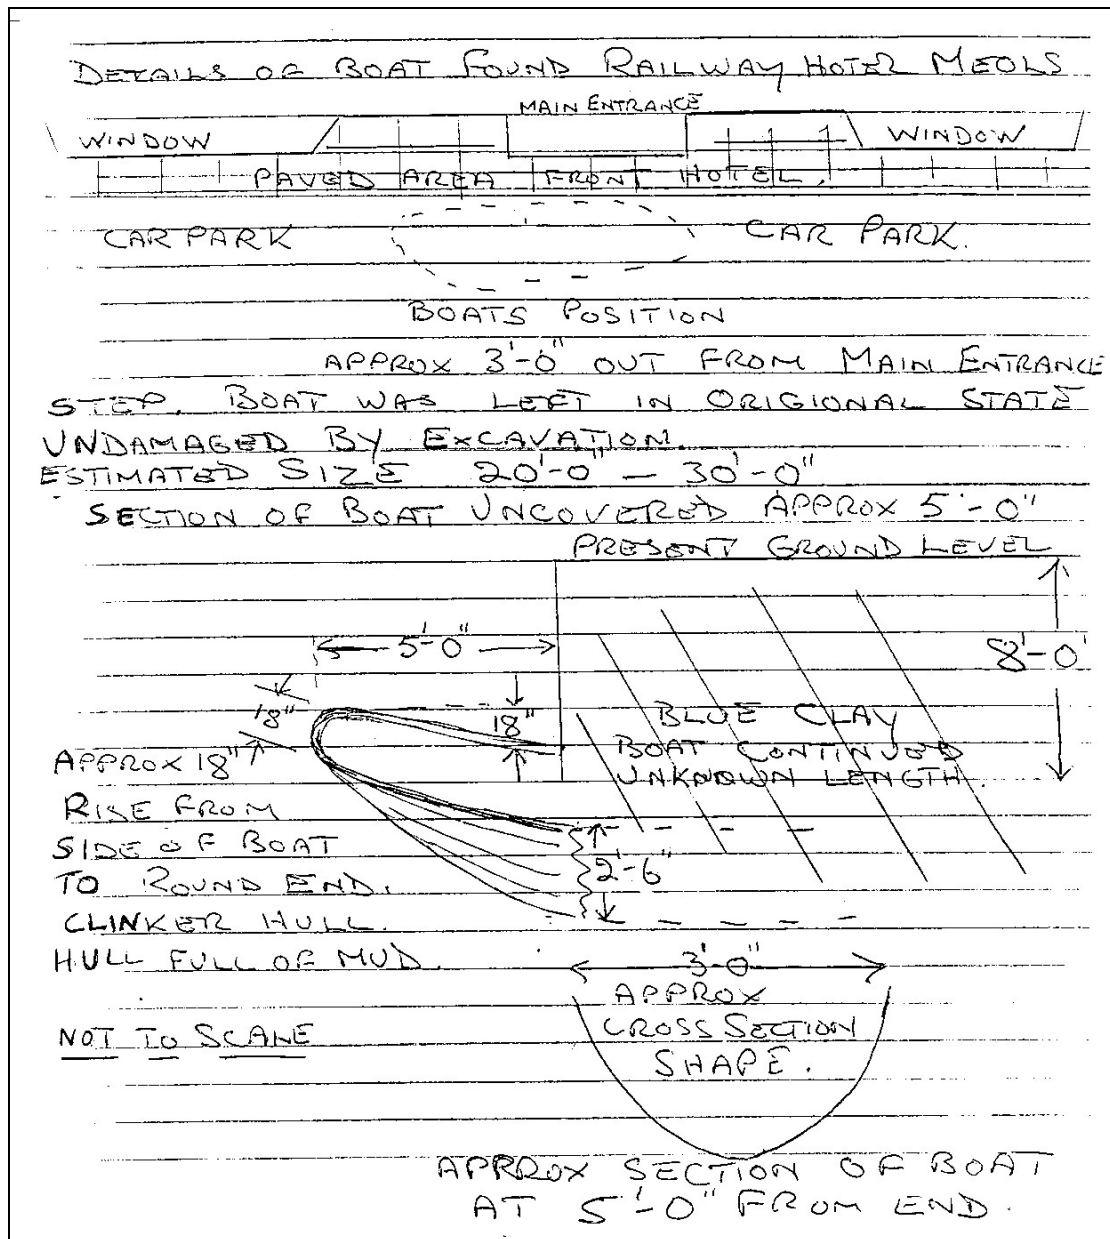 DETAILS OF BOAT FOUND RAILWAY HOTEL MEOLS
MAIN ENTRANCE
WINDOW WINDOW
PAVED AREA FRONT HOTEL.
CAR PARK CAR PARK.
BOATS POSITION
APPROX 3'-0" OUT FROM MAIN ENTRANCE
STEP. BOAT WAS LEFT IN ORIGIONAL STATE
UNDAMAGED BY EXCAVATION.
ESTIMATED SIZE 20'-0" — 30'-0"
SECTION OF BOAT UNCOVERED APPROX 5'-0"
PRESENT GROUND LEVEL
5'-0"
8'-0'
18"
18"
BLUE CLAY
BOAT CONTINUED
UNKNOWN LENGTH.
APPROX 18"
RISE FROM
SIDE OF BOAT
TO ROUND END.
CLINKER HULL.
HULL FULL OF MUD.
2'-6"
3'-0"
APPROX
CROSS SECTION
SHAPE.
NOT TO SCALE
APPROX SECTION OF BOAT
AT 5'-0" FROM END.